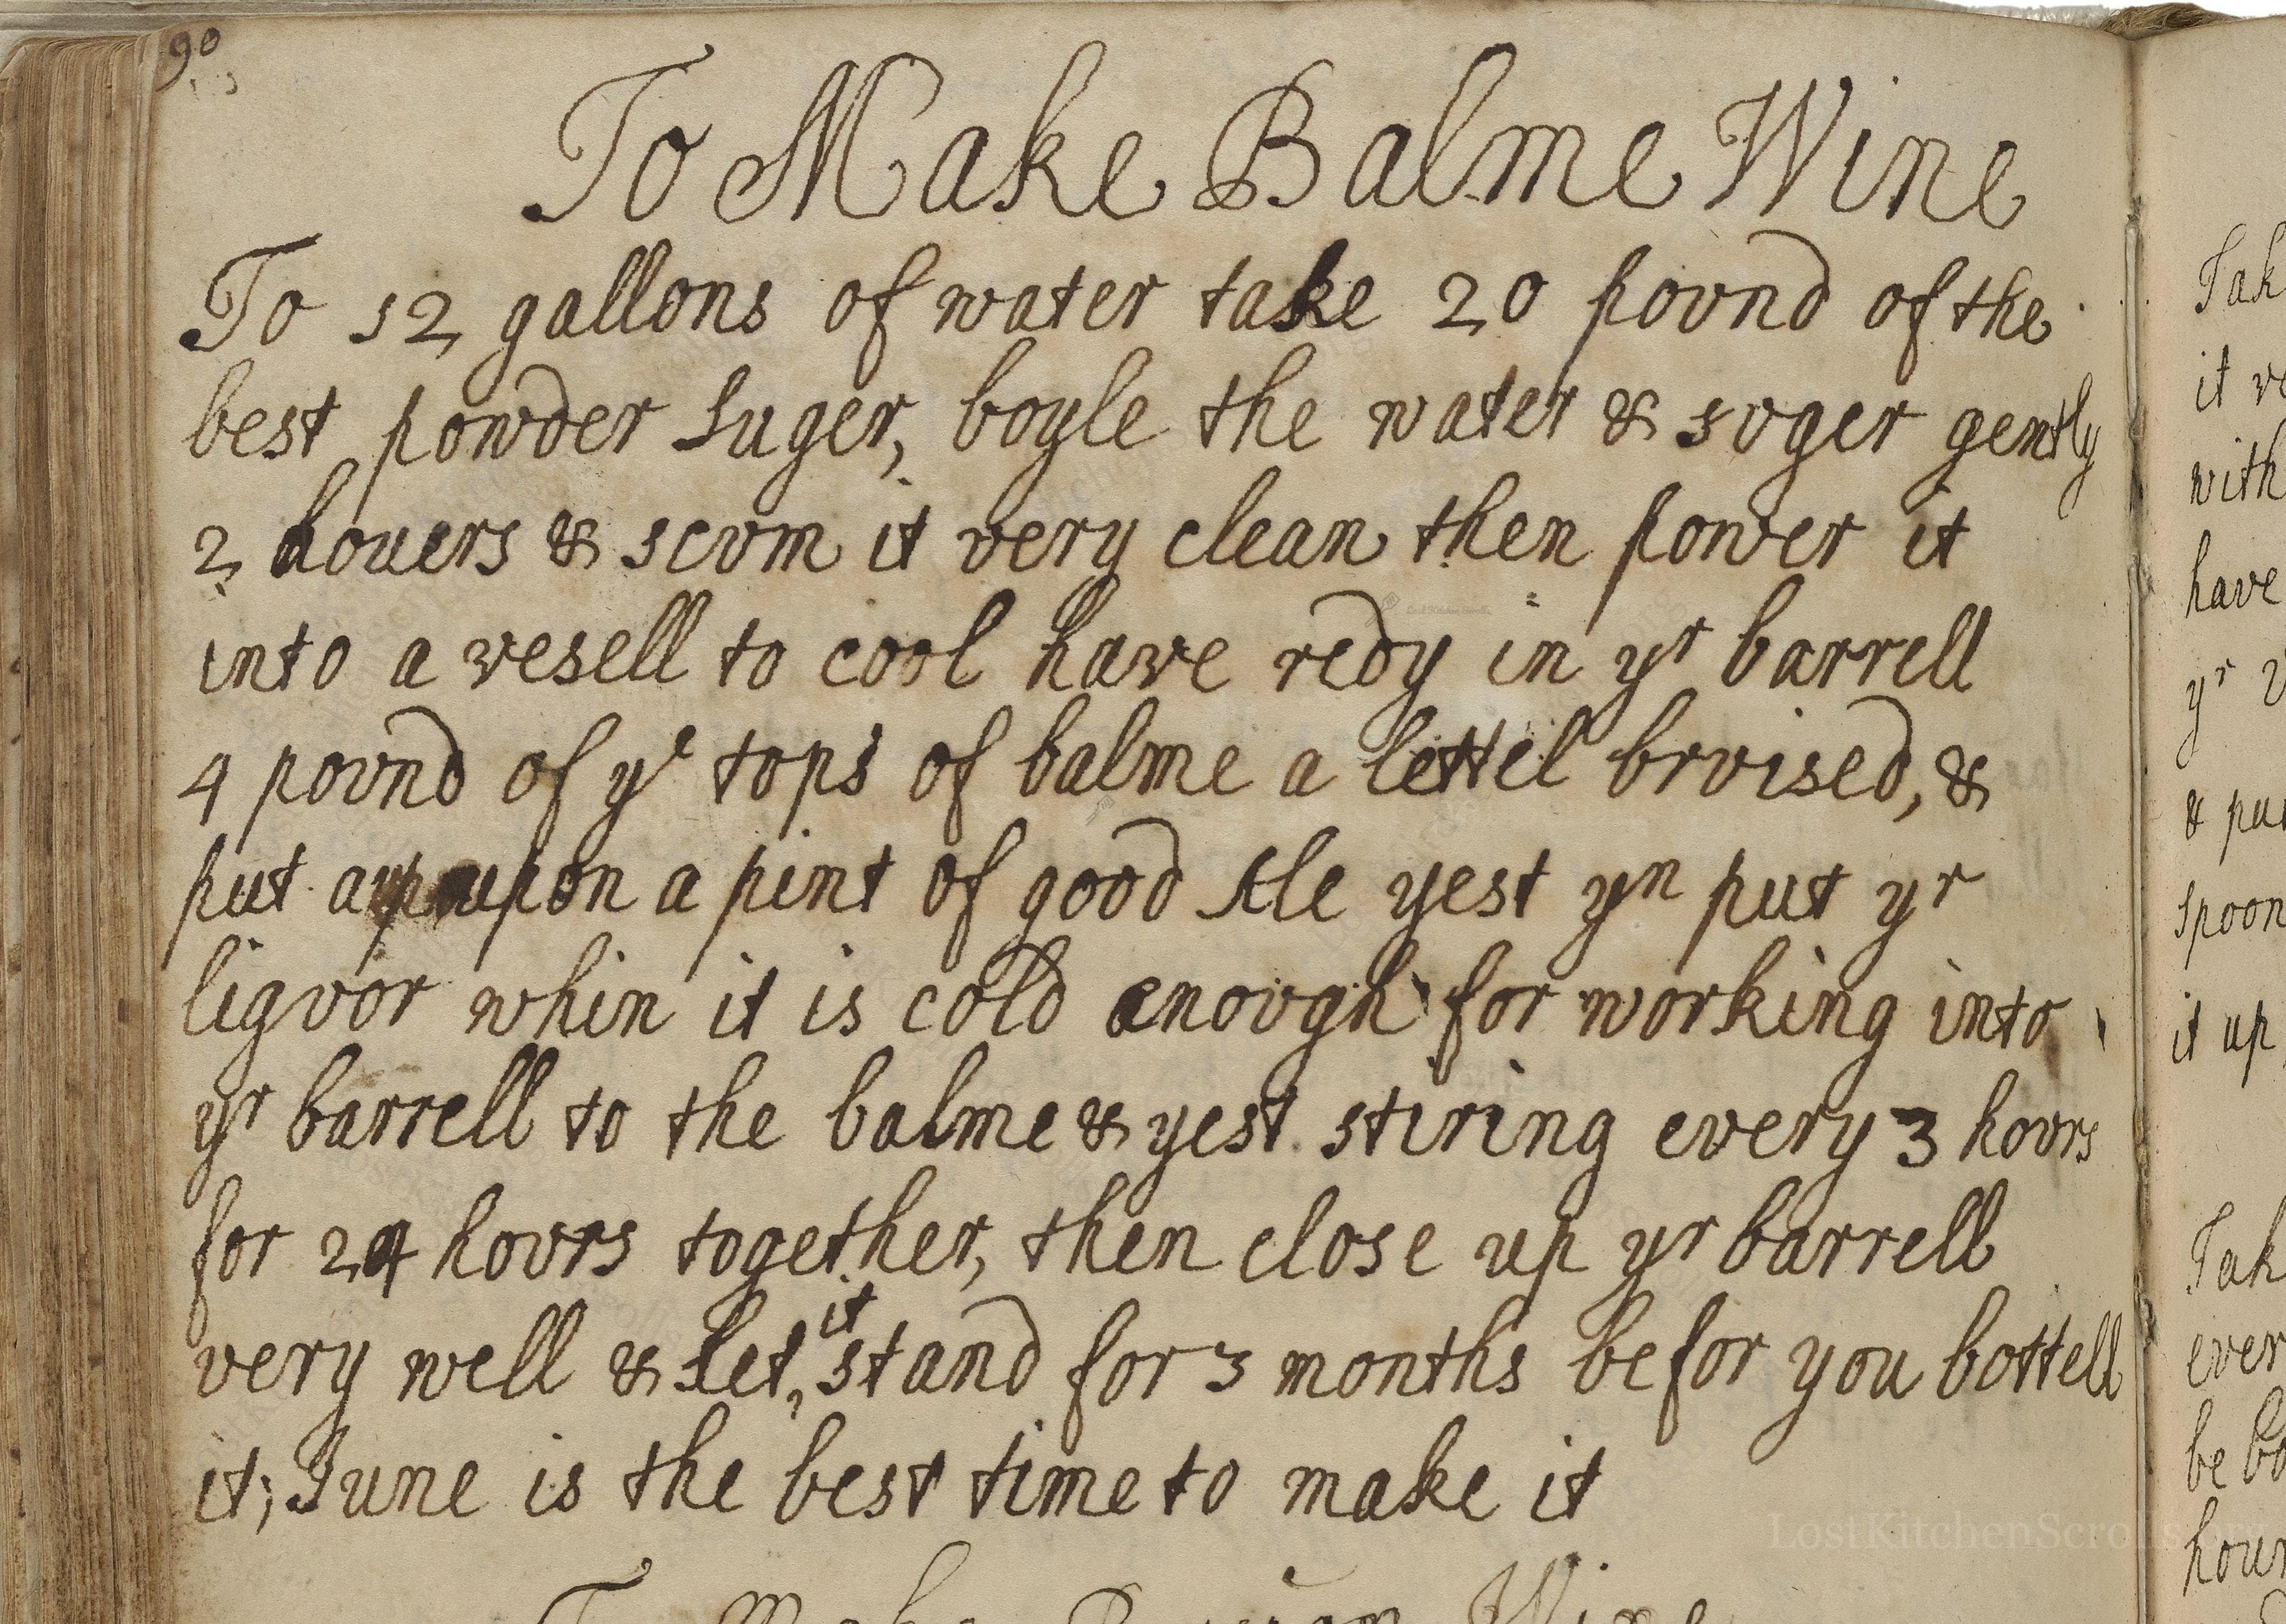 90
To Make Balme Wine
To 12 gallons of water take 20 povnd of the
best powder Suger, boyle the water & svger gently
2 houers & scvm it very clean then power it
into a vesell to cool have redy in yr barrell
4 povnd of ye tops of balme a lettel brvised, &
put upon a pint of good Ale yest yn put yr
liqvor whin it is cold enovgh for working into
yr barrell to the balme & yest stiring every 3 hovrs
for 24 hovrs together, then close up yr barrell
very well & let it stand for 3 months befor you bottell
it; June is the best time to make it
To Make Wine
Tak
it ve
with
have
yr
& put
spoon
it up
Tak
ever
be bo
hour
LostKitchenScrolls.org